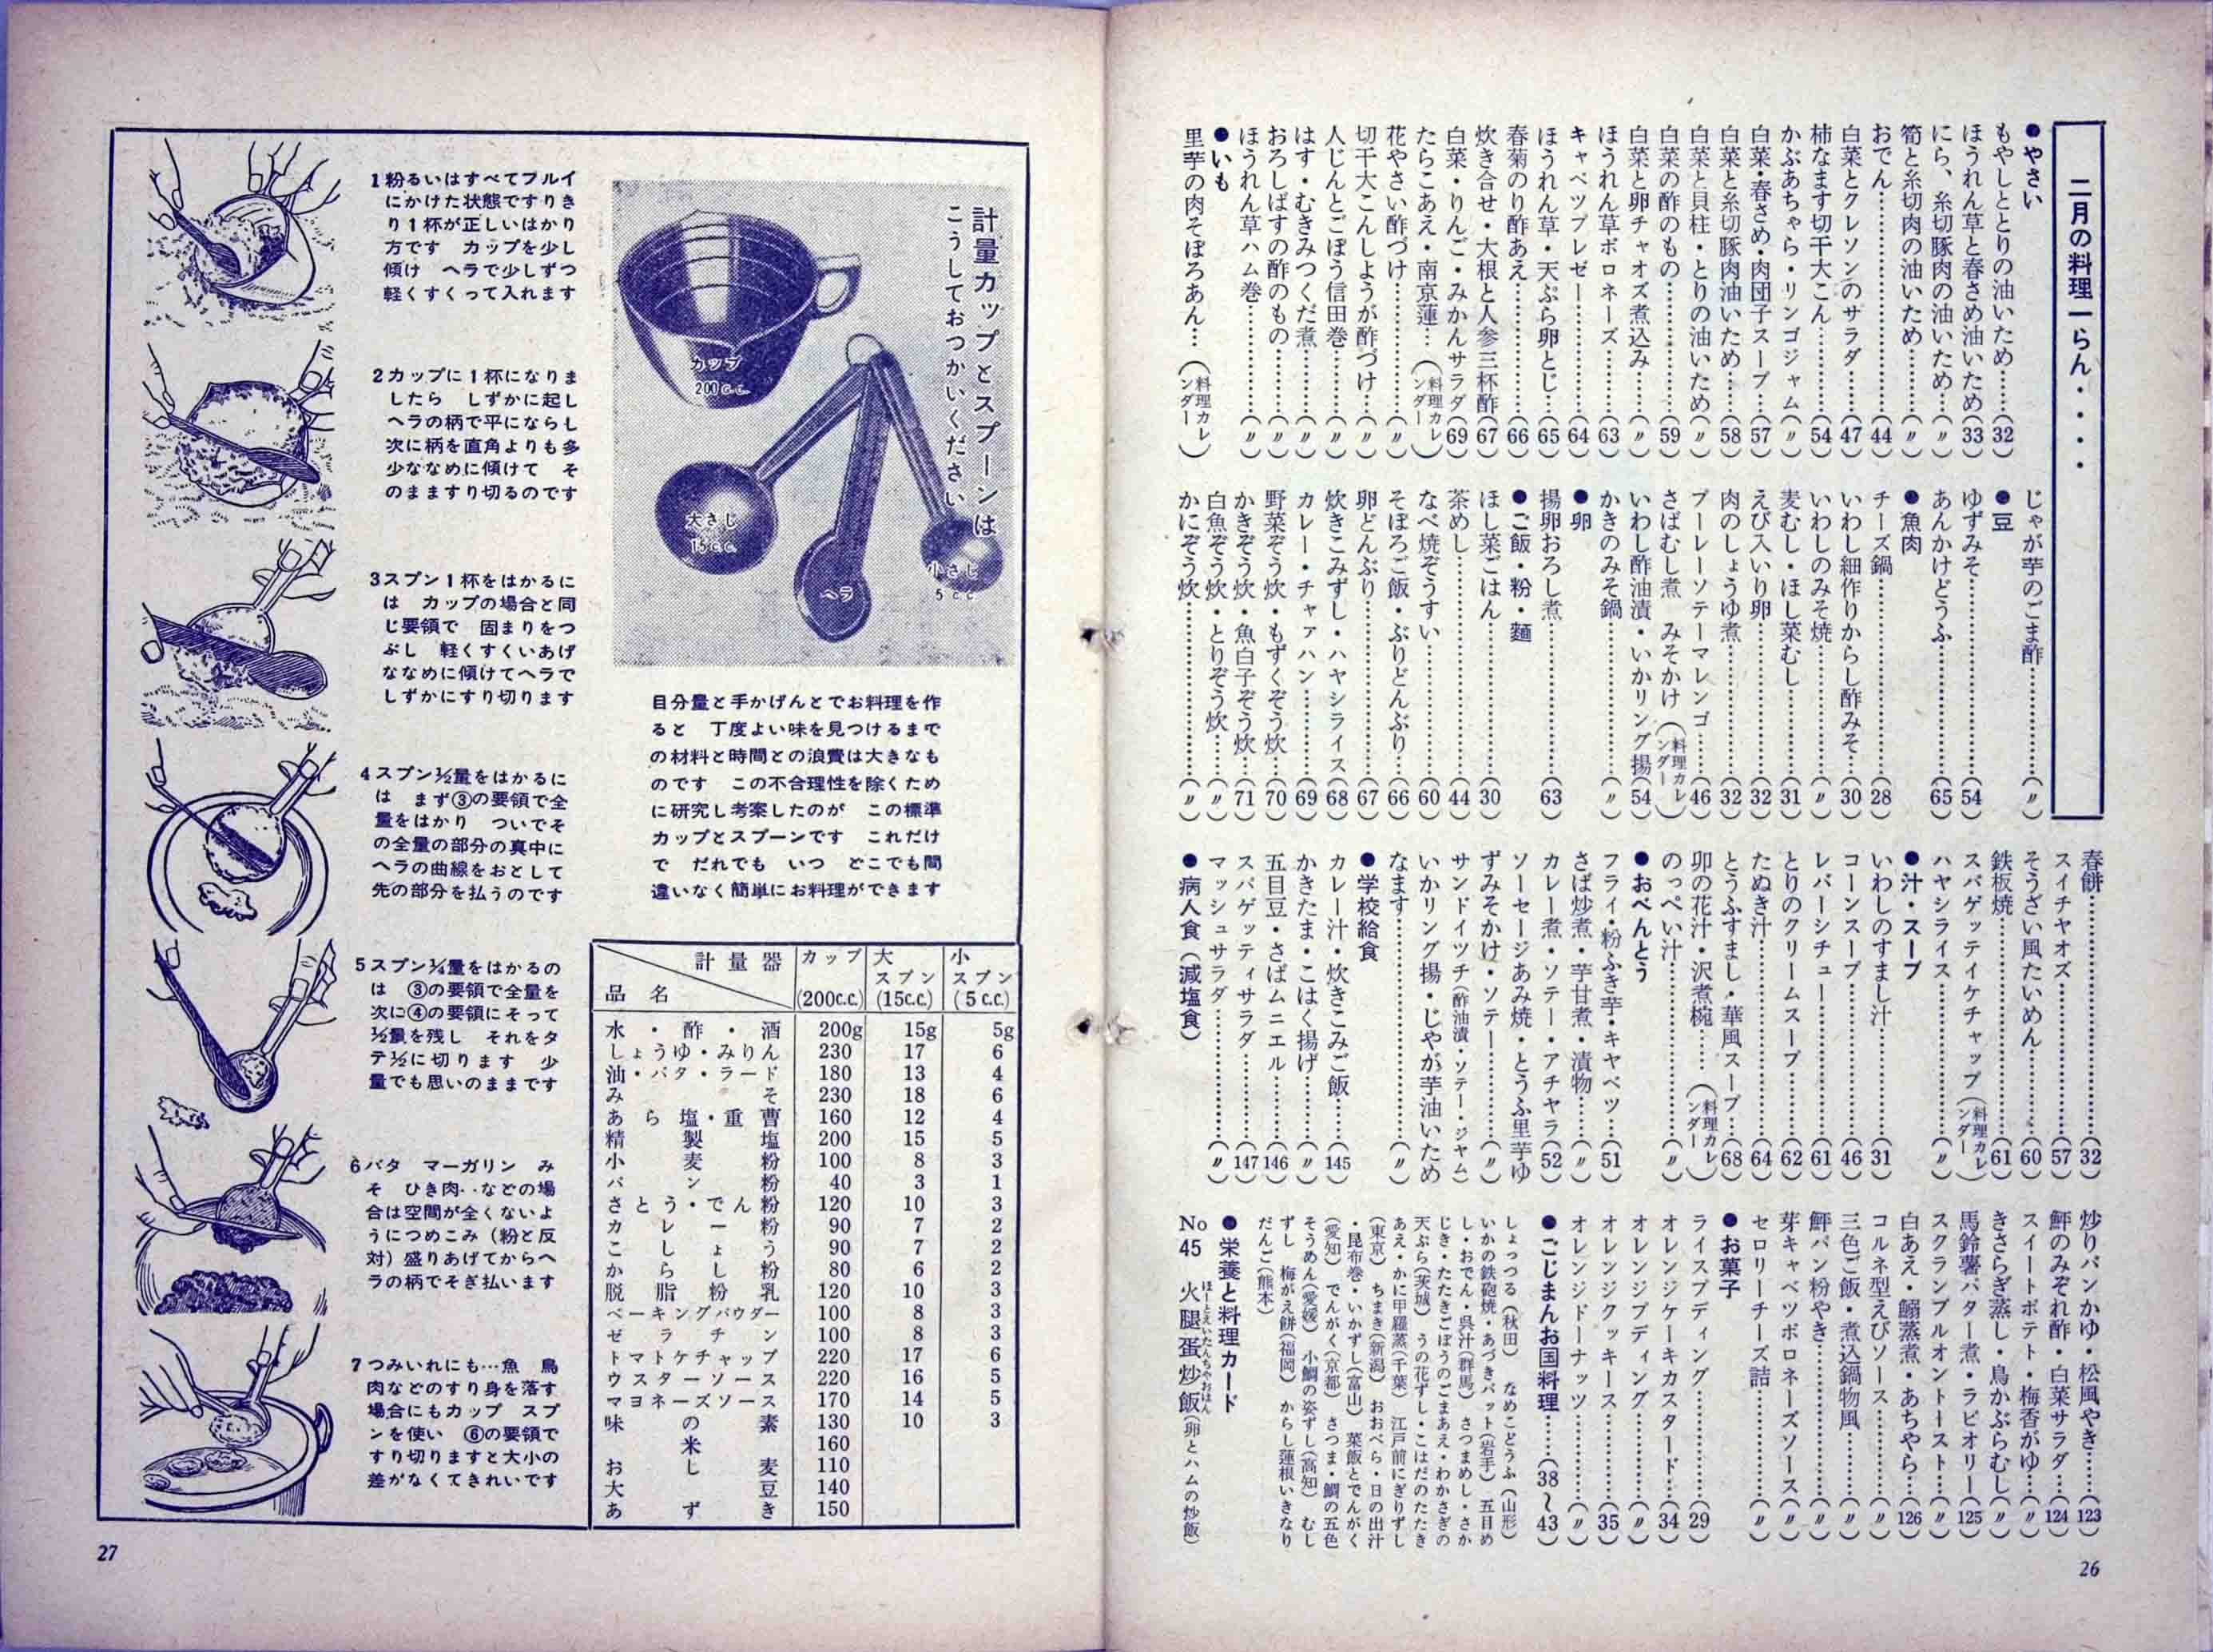 二月の料理一らん・・・・
●やさい
もやしととりの油いため……(32)
ほうれん草と春さめ油いため(33)
にら、糸切豚肉の油いため…(〃)
筍と糸切肉の油いため………(〃)
おでん…………………………(44)
白菜とクレソンのサラダ……(47)
柿なます切干大こん…………(54)
かぶあちゃら・リンゴジャム(〃)
白菜・春さめ・肉団子スープ…(57)
白菜と糸切豚肉油いため……(58)
白菜と貝柱・とりの油いため(〃)
白菜の酢のもの………………(59)
白菜と卵チャオズ煮込み……(〃)
ほうれん草ボロネーズ………(63)
キャベツブレゼー……………(64)
ほうれん草・天ぷら卵とじ…(65)
春菊のり酢あえ………………(66)
炊き合せ・大根と人参三杯酢(67)
白菜・りんご・みかんサラダ(69)
たらこあえ・南京蓮…(料理カレンダー)
花やさい酢づけ………………(〃)
切干大こんしようが酢づけ…(〃)
人じんとごぼう信田巻………(〃)
はす・むきみつくだ煮………(〃)
おろしばすの酢のもの………(〃)
ほうれん草ハム巻……………(〃)
●いも
里芋の肉そぼろあん…(料理カレンダー)
じゃが芋のごま酢……………(〃)
●豆
ゆずみそ………………………(54)
あんかけどうふ………………(65)
●魚肉
チーズ鍋………………………(28)
いわし細作りからし酢みそ…(30)
いわしのみそ焼………………(〃)
麦むし・ほし菜むし…………(31)
えび入いり卵…………………(32)
肉のしょうゆ煮………………(32)
プーレーソテーマレンゴ……(46)
さばむし煮 みそかけ(料理カレンダー)
いわし酢油漬・いかリング揚(54)
かきのみそ鍋…………………(〃)
●卵
揚卵おろし煮…………………(63)
●ご飯・粉・麵
ほし菜ごはん…………………(30)
茶めし…………………………(44)
なべ焼ぞうすい………………(60)
そぼろご飯・ぶりどんぶり…(66)
卵どんぶり……………………(67)
炊きこみずし・ハヤシライス(68)
カレー・チャアハン…………(69)
野菜ぞう炊・もずくぞう炊…(70)
かきぞう炊・魚白子ぞう炊…(71)
白魚ぞう炊・とりぞう炊……(〃)
かにぞう炊……………………(〃)
春餅……………………………(32)
スイチヤオズ…………………(57)
そうざい風たいめん…………(60)
鉄板焼…………………………(61)
スパゲッテイケチャップ(料理カレンダー)
ハヤシライス…………………(〃)
●汁・スープ
いわしのすまし汁……………(31)
コーンスープ…………………(46)
レバーシチュー………………(61)
とりのクリームスープ………(62)
たぬき汁………………………(64)
とうふすまし・華風スープ…(68)
卯の花汁・沢煮椀……(料理カレンダー)
のっぺい汁……………………(〃)
●おべんとう
フライ・粉ふき芋・キャベツ…(51)
さば炒煮・芋甘煮・漬物……(〃)
カレー煮・ソテー・アチャラ(52)
ソーセージあみ焼・とうふ里芋ゆ
ずみそかけ・ソテー…………(〃)
サンドイツチ(酢油漬・ソテー・ジャム)
いかリング揚・じゃが芋油いため
なます…………………………(〃)
●学校給食
カレー汁・炊きこみご飯……(145)
かきたま・こはく揚げ………(〃)
五目豆・さばムニエル………(146)
スパゲッティサラダ…………(147)
マッシュサラダ………………(〃)
●病人食(減塩食)
炒りパンかゆ・松風やき……(123)
鮃のみぞれ酢・白菜サラダ…(124)
スイートポテト・梅香がゆ…(〃)
きさらぎ蒸し・鳥かぶらむし(〃)
馬鈴薯バター煮・ラビオリー(125)
スクランブルオントースト…(〃)
白あえ・鰤蒸煮・あちやら…(126)
コルネ型えびソース…………(〃)
三色ご飯・煮込鍋物風………(〃)
鮃パン粉やき…………………(〃)
芽キャベツボロネーズソース(〃)
セロリーチーズ詰……………(〃)
●お菓子
ライスプディング……………(29)
オレンジケーキカスタード…(34)
オレンジプディング…………(〃)
オレンジクッキース…………(35)
オレンジドーナッツ…………(〃)
●ごじまんお国料理……(38〜43)
しょっつる(秋田) なめこどうふ(山形)
いかの鉄砲焼・あづきバット(岩手) 五目め
し・おでん・呉汁(群馬) さつまめし・さか
じき・たたきごぼうのごまあえ・わかさぎの
天ぷら(茨城) うの花ずし・こはだのたたき
あえ・かに甲羅蒸(千葉) 江戸前にぎりずし
(東京) ちまき(新潟) おおべら・日の出汁
・昆布巻・いかずし(富山) 菜飯とでんがく
(愛知) でんがく(京都) さつま・鯛の五色
そうめん(愛媛) 小鯛の姿ずし(高知) むし
ずし 梅がえ餅(福岡) からし蓮根いきなり
だんご(熊本)
●栄養と料理カード
No45 火腿蛋炒飯(卵とハムの炒飯)
ほーとえいたんちゃおはん
26
計量カップとスプーンは
こうしておつかいください
カップ
200c.c.
大さじ
15c.c.
ヘラ
小さじ
5cc
目分量と手かげんとでお料理を作
ると 丁度よい味を見つけるまで
の材料と時間との浪費は大きなも
のです この不合理性を除くため
に研究し考案したのが この標準
カップとスプーンです これだけ
で だれでも いつ どこでも間
違いなく簡単にお料理ができます
1粉るいはすべてフルイ
にかけた状態ですりき
り1杯が正しいはかり
方です カップを少し
傾け ヘラで少しずつ
軽くすくって入れます
2カップに1杯になりま
したら しずかに起し
ヘラの柄で平にならし
次に柄を直角よりも多
少ななめに傾けて そ
のまますり切るのです
3スプン1杯をはかるに
は カップの場合と同
じ要領で 固まりをつ
ぶし 軽くすくいあげ
ななめに傾けてヘラで
しずかにすり切ります
4スプン½量をはかるに
は まず③の要領で全
量をはかり ついでそ
の全量の部分の真中に
ヘラの曲線をおとして
先の部分を払うのです
5スプン¼量をはかるの
は ③の要領で全量を
次に④の要領にそって
½量を残し それをタ
テ½に切ります 少
量でも思いのままです
6バタ マーガリン み
そ ひき肉‥などの場
合は空間が全くないよ
うにつめこみ(粉と反
対)盛りあげてからヘ
ラの柄でそぎ払います
7つみいれにも…魚 鳥
肉などのすり身を落す
場合にもカップ スプ
ンを使い ⑥の要領で
すり切りますと大小の
差がなくてきれいです
計量器 カップ(200c.c.) 大スプン(15c.c.) 小スプン(5c.c.)
品名
水・酢・酒 200g 15g 5g
しょうゆ・みりん 230 17 6
油・バタ・ラード 180 13 4
みそ 230 18 6
あら塩・重曹 160 12 4
精製塩 200 15 5
小麦粉 100 8 3
パン粉 40 3 1
さとう・でん粉 120 10 3
カレー粉 90 7 2
こしょう 90 7 2
からし粉 80 6 2
脱脂粉乳 120 10 3
ベーキングパウダー 100 8 3
ゼラチン 100 8 3
トマトケチャップ 220 17 6
ウスターソース 220 16 5
マヨネーズソース 170 14 5
味の素 130 10 3
米 160
おし麦 110
大豆 140
あずき 150
27